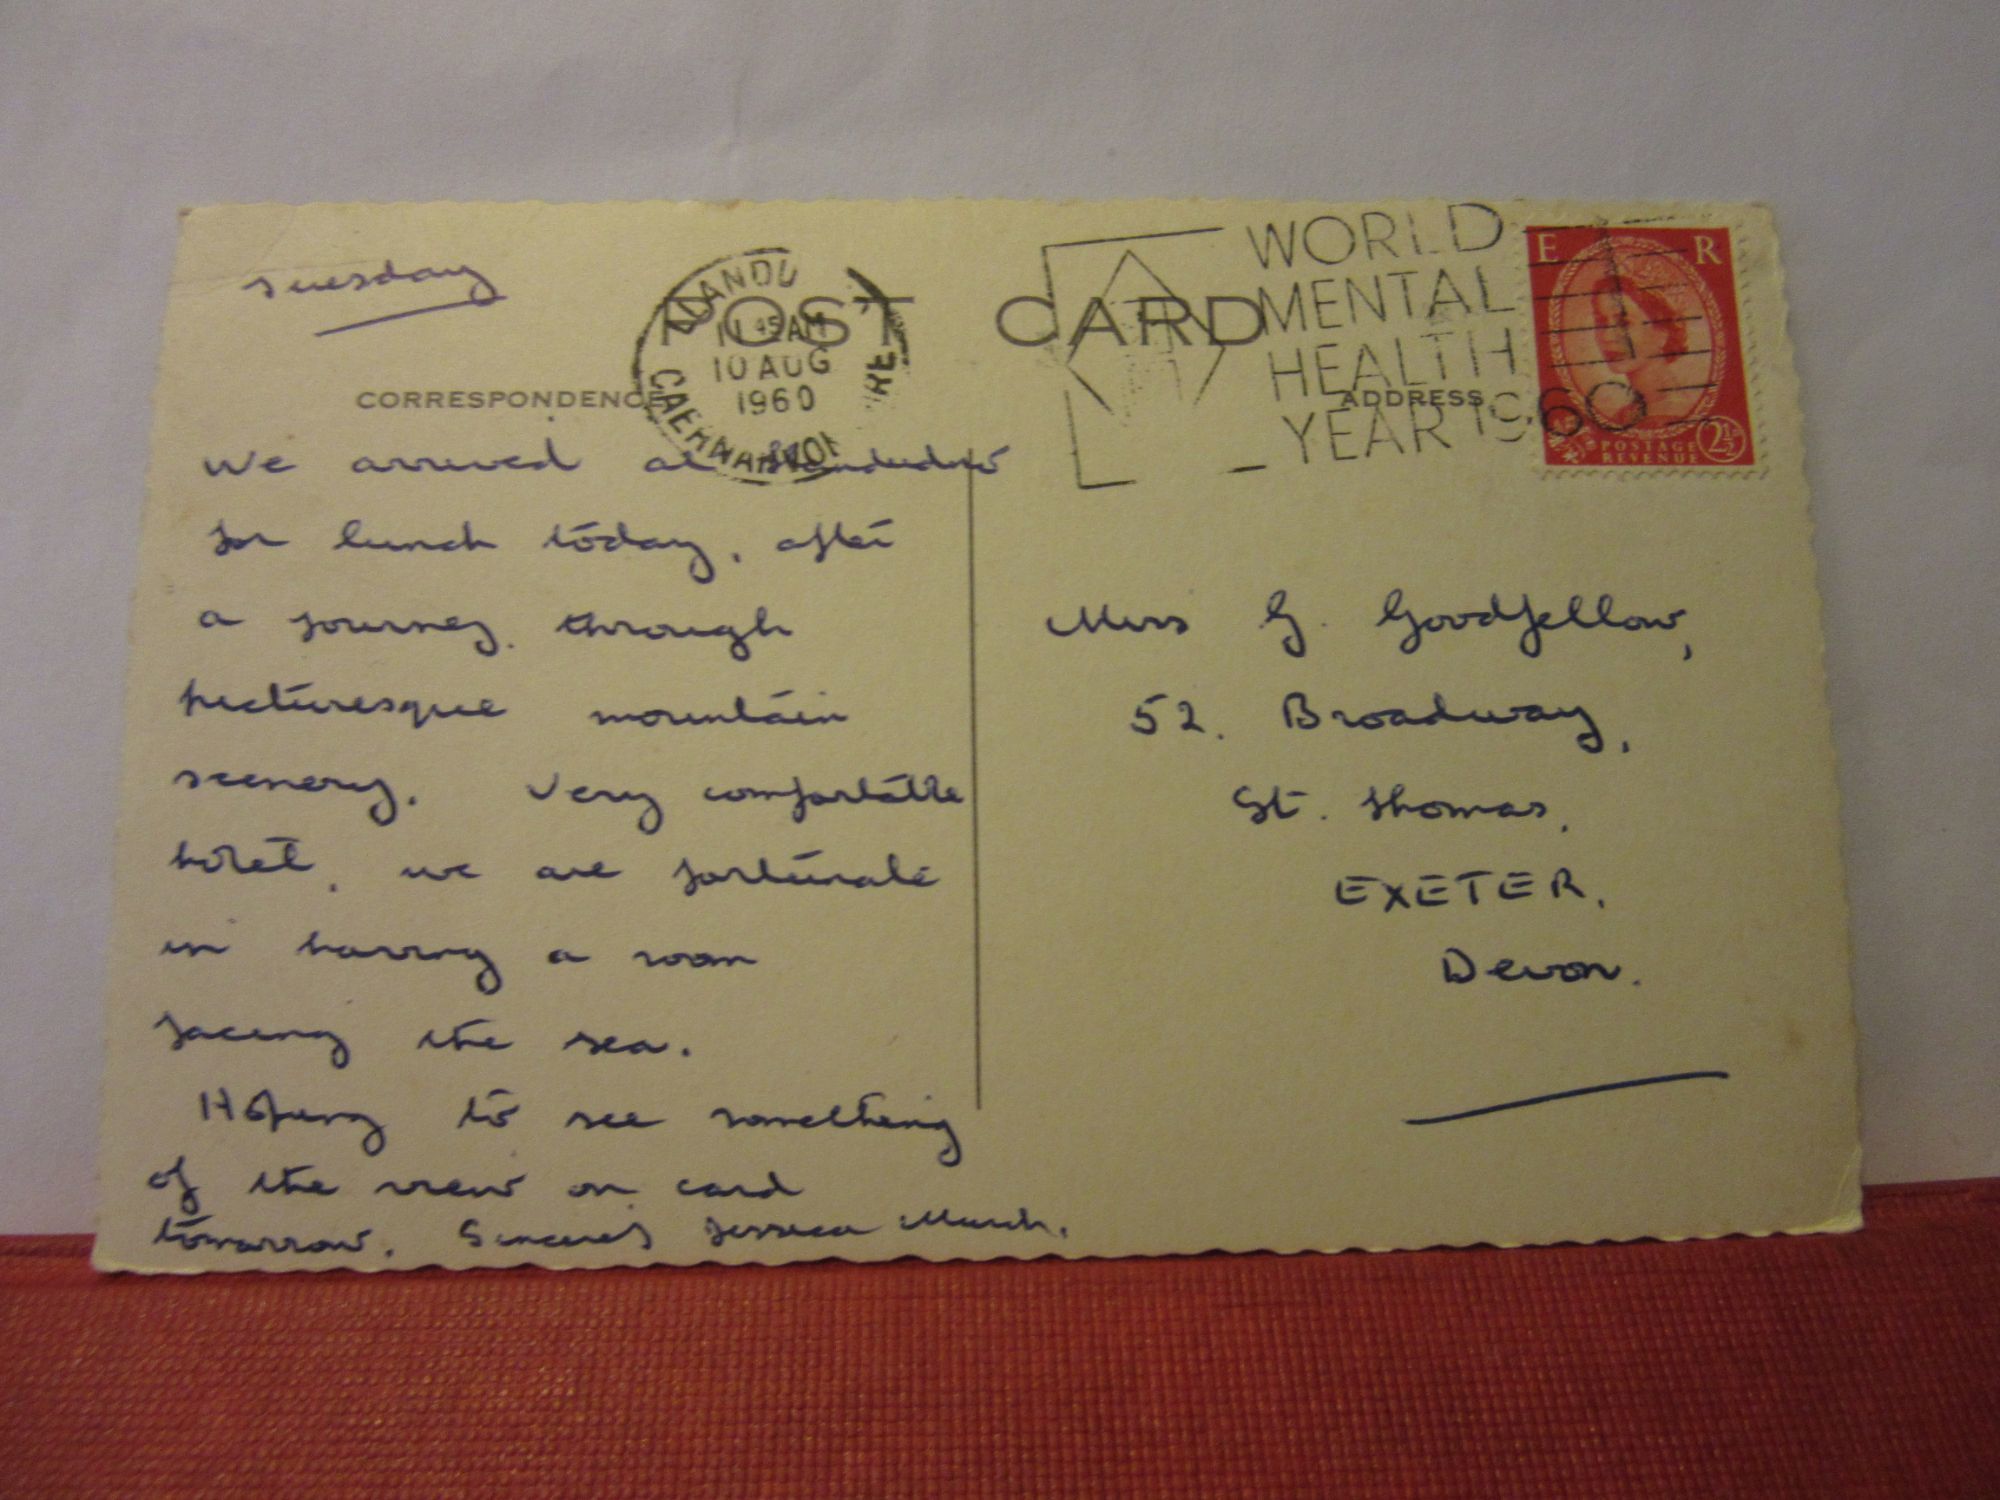 Tuesday
POST CARD
CORRESPONDENCE
ADDRESS
LLANDU
11 45 AM
10 AUG
1960
CAERNARVON RE
WORLD
MENTAL
HEALTH
YEAR 1960
E R
POSTAGE
REVENUE
2½
We arrived at Llandudno
for lunch today, after
a journey through
picturesque mountain
scenery. Very comfortable
hotel, we are fortunate
in having a room
facing the sea.
Hoping to see something
of the view on card
tomorrow. Jessica
Miss G. Goodfellow,
52. Broadway,
St. Thomas,
EXETER.
Devon.